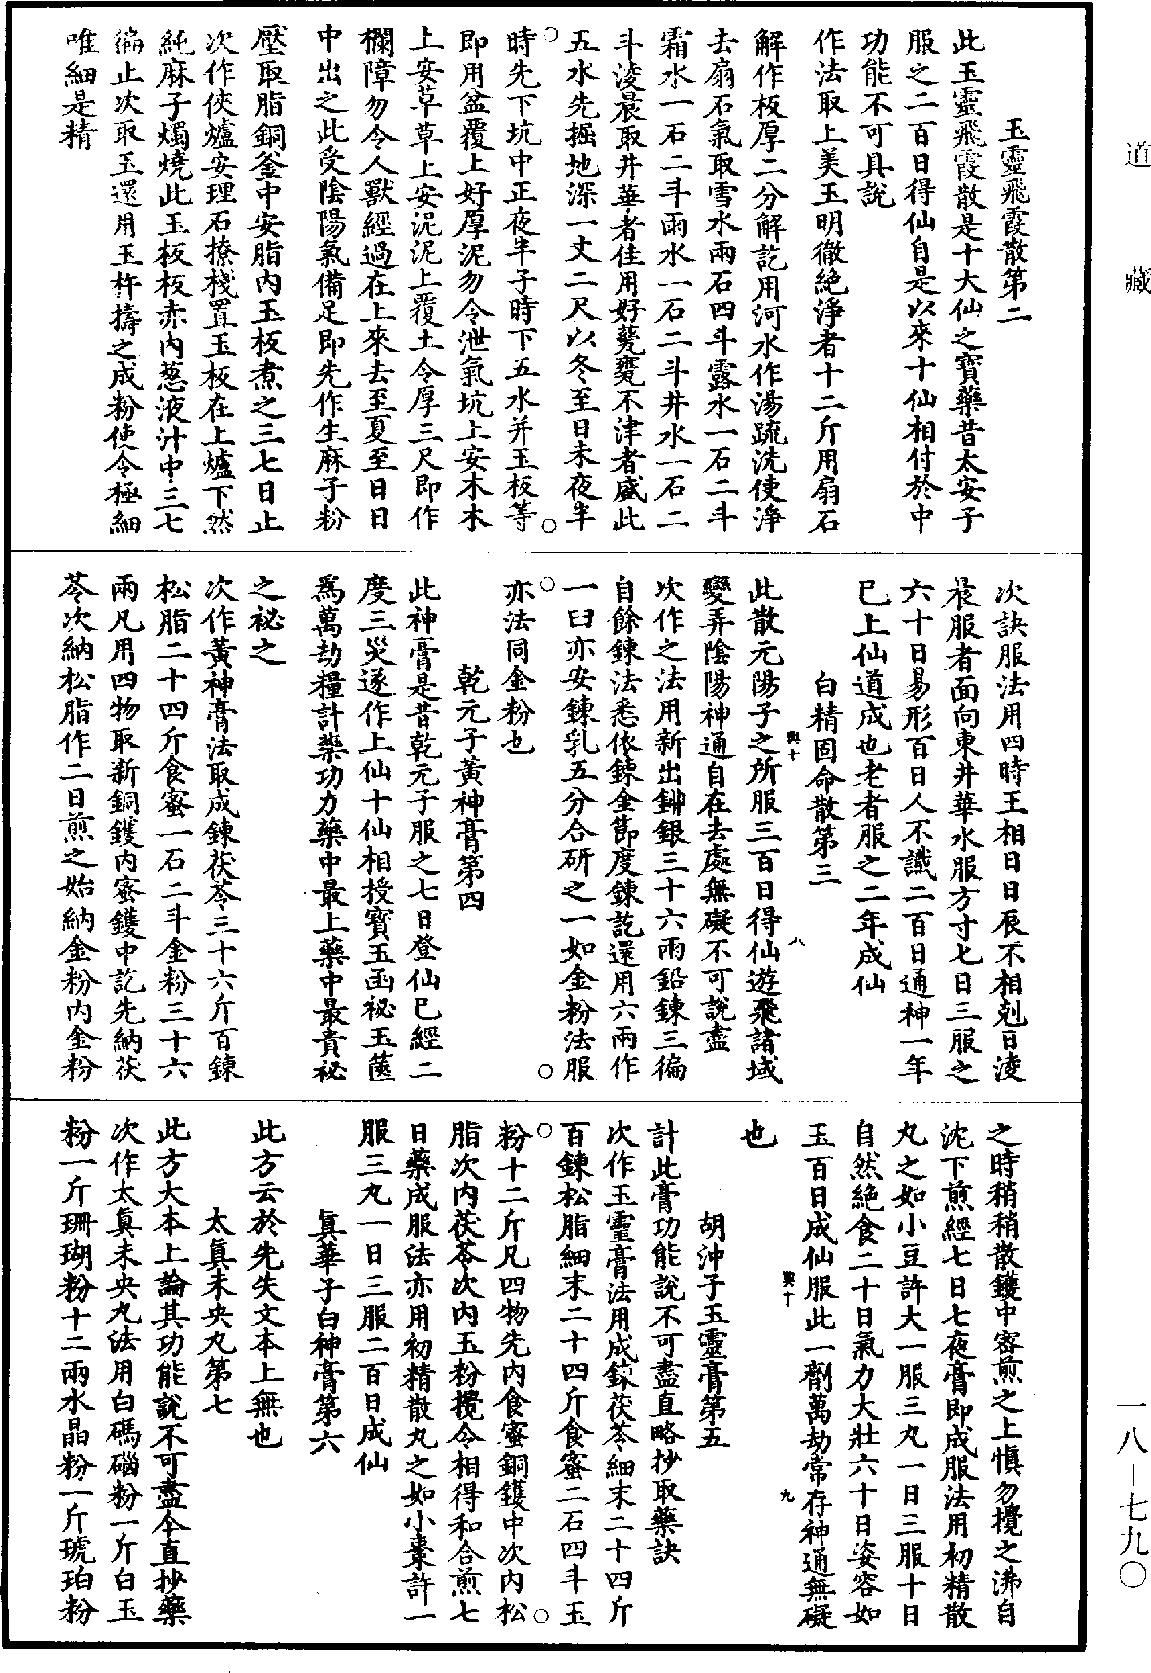 道藏
玉靈飛霞散第二
此玉靈飛霞散是十大仙之寶藥昔太安子
服之二百日得仙自是以來十仙相付於中
功能不可具說
作法取上美玉明徹絕淨者十二斤用扇石
解作板厚二分解訖用河水作湯疏洗使淨
去扇石氣取雪水兩石四斗露水一石二斗
霜水一石二斗雨水一石二斗井水一石二
斗淩晨取井華者佳用好甖甕不津者盛此
五水先掘地深一丈二尺以冬至日未夜半
時先下坑中正夜半子時下五水并玉板等
即用盆覆上好厚泥勿令泄氣坑上安木木
上安草草上安泥泥上覆土令厚三尺即作
欄障勿令人獸經過在上來去至夏至日日
中出之此受陰陽氣備足即先作生麻子粉
壓取脂銅釜中安脂內玉板煮之三七日止
次作俠爐安理石撩棧置玉板在上爐下然
純麻子燭燒此玉板板赤內葱液汁中三七
徧止次取玉還用玉杵擣之成粉使令極細
唯細是精
次訣服法用四時王相日日辰不相剋日淩
晨服者面向東井華水服方寸七日三服之
六十日易形百日人不識二百日通神一年
已上仙道成也老者服之二年成仙
白精固命散第三
此散元陽子之所服三百日得仙遊飛諸域
變弄陰陽神通自在去處無礙不可說盡
次作之法用新出鉚銀三十六兩鉛鍊三徧
自餘鍊法悉依鍊金節度鍊訖還用六兩作
一曰亦安鍊乳五分合研之一如金粉法服
亦法同金粉也
乾元子黃神膏第四
此神膏是昔乾元子服之七日登仙已經二
度三災遂作上仙十仙相授寶玉函祕玉篋
為萬劫糧計藥功力藥中最上藥中最貴祕
之祕之
次作黃神膏法取成鍊茯苓三十六斤百鍊
松脂二十四斤食蜜一石二斗金粉三十六
兩凡用四物取新銅鑊內蜜鑊中訖先納茯
苓次納松脂作二日煎之始納金粉內金粉
之時稍稍散鑊中密煎之上慎勿攪之沸自
沈下煎經七日七夜膏即成服法用初精散
丸之如小豆許大一服三丸一日三服十日
自然絕食二十日氣力大壯六十日姿容如
玉百日成仙服此一劑萬劫常存神通無礙
也
胡沖子玉靈膏第五
計此膏功能說不可盡直略抄取藥訣
次作玉靈膏法用成鍊茯苓細末二十四斤
百鍊松脂細末二十四斤食蜜二石四斗玉
粉十二斤凡四物先內食蜜銅鑊中次內松
脂次內茯苓次內玉粉攪令相得和合煎七
日藥成服法亦用初精散丸之如小棗許一
服三丸一日三服二百日成仙
真華子白神膏第六
此方云於先失文本上無也
太真未央丸第七
此方大本上論其功能說不可盡今直抄藥
次作太真未央丸法用白碼碯粉一斤白玉
粉一斤珊瑚粉十二兩水晶粉一斤琥珀粉
興十
八
興十
九
一八—七九〇